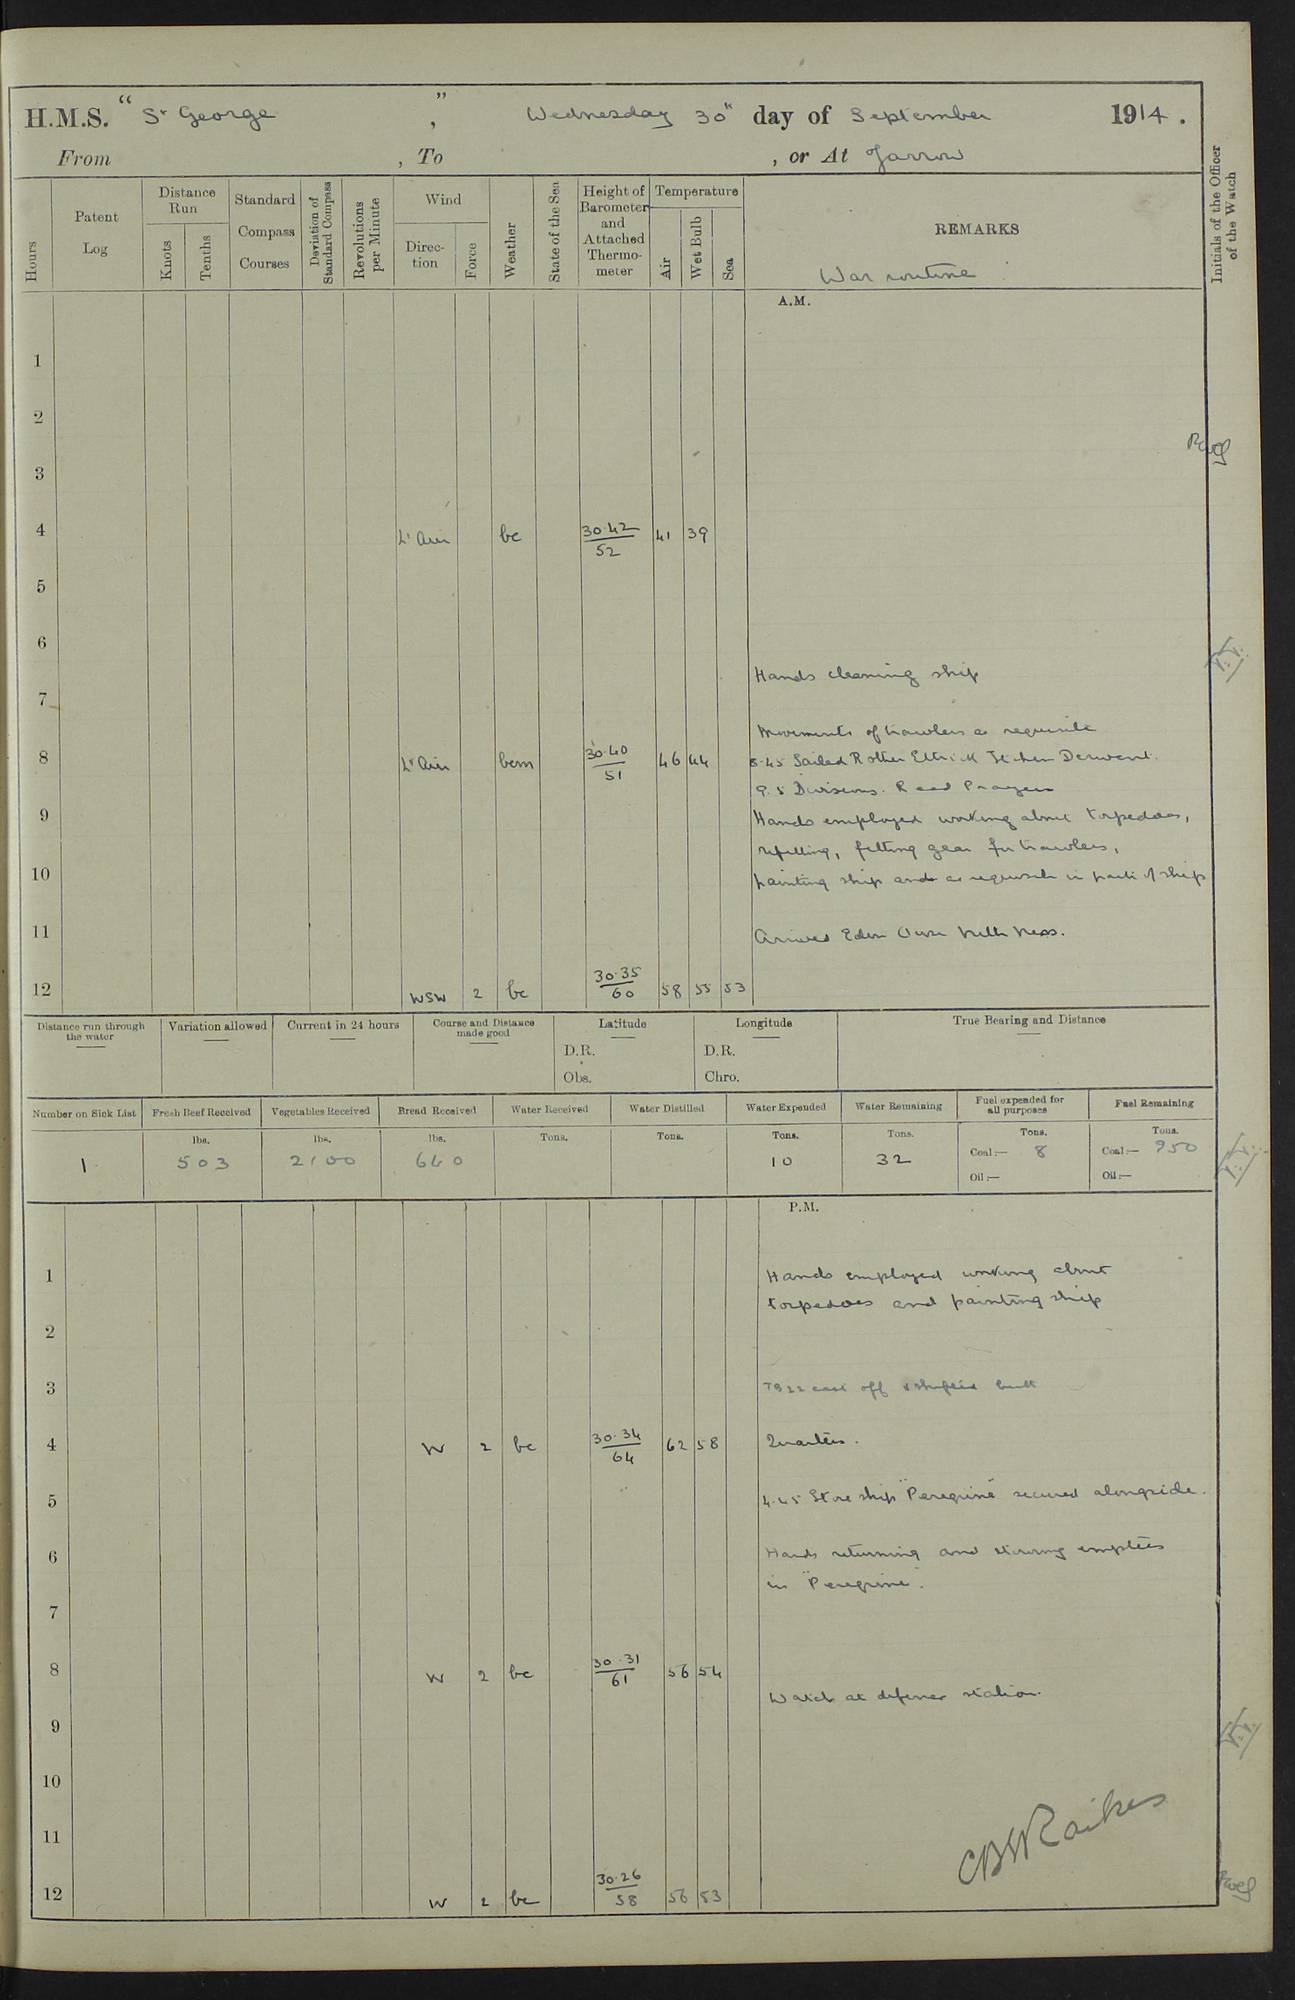 H.M.S. "St George", Wednesday 30th day of September 1914.
From , To , or At Jarrow
Hours
Patent Log
Distance Run
Knots
Tenths
Standard Compass Courses
Deviation of Standard Compass
Revolutions per Minute
Wind
Direction
Force
Weather
State of the Sea
Height of Barometer and Attached Thermometer
Temperature
Air
Wet Bulb
Sea
REMARKS
War routine
Initials of the Officer of the Watch
A.M.
1
2
3
4 Lt Air bc 30.42 52 41 39
5
6
Hands cleaning ship
7
Movements of trawlers as requisite
8 Lt Air bcm 30.40 51 46 44 8.45 Sailed Rother Ettrick Itchen Derwent.
9.5 Divisions. Read Prayers
9 Hands employed working about torpedoes,
refitting, fitting gear for trawlers,
10 painting ship and as requisite in part of ship
11 Arrived Eden Ouse Ness.
12 WSW 2 bc 30.35 60 58 55 53
Distance run through the water
Variation allowed
Current in 24 hours
Course and Distance made good
Latitude
D.R.
Obs.
Longitude
D.R.
Chro.
True Bearing and Distance
Number on Sick List
Fresh Beef Received
Vegetables Received
Bread Received
Water Received
Water Distilled
Water Expended
Water Remaining
Fuel expended for all purposes
Fuel Remaining
lbs. lbs. lbs. Tons. Tons. Tons. Tons. Tons. Tons.
1 503 2100 660 10 32 Coal:— 8 Coal:— 950
Oil:— Oil:—
P.M.
1 Hands employed working about
torpedoes and painting ship
2
3 TB 22 cast off & shifted
4 W 2 bc 30.34 64 62 58 Quarters.
5 4.45 Store ship "Peregrine" secured alongside.
6 Hands returning and stowing empties
in "Peregrine".
7
8 W 2 bc 30.31 61 56 54
Watch at defence station.
9
10
11
CBW Raikes
12 W 2 bc 30.26 58 56 53